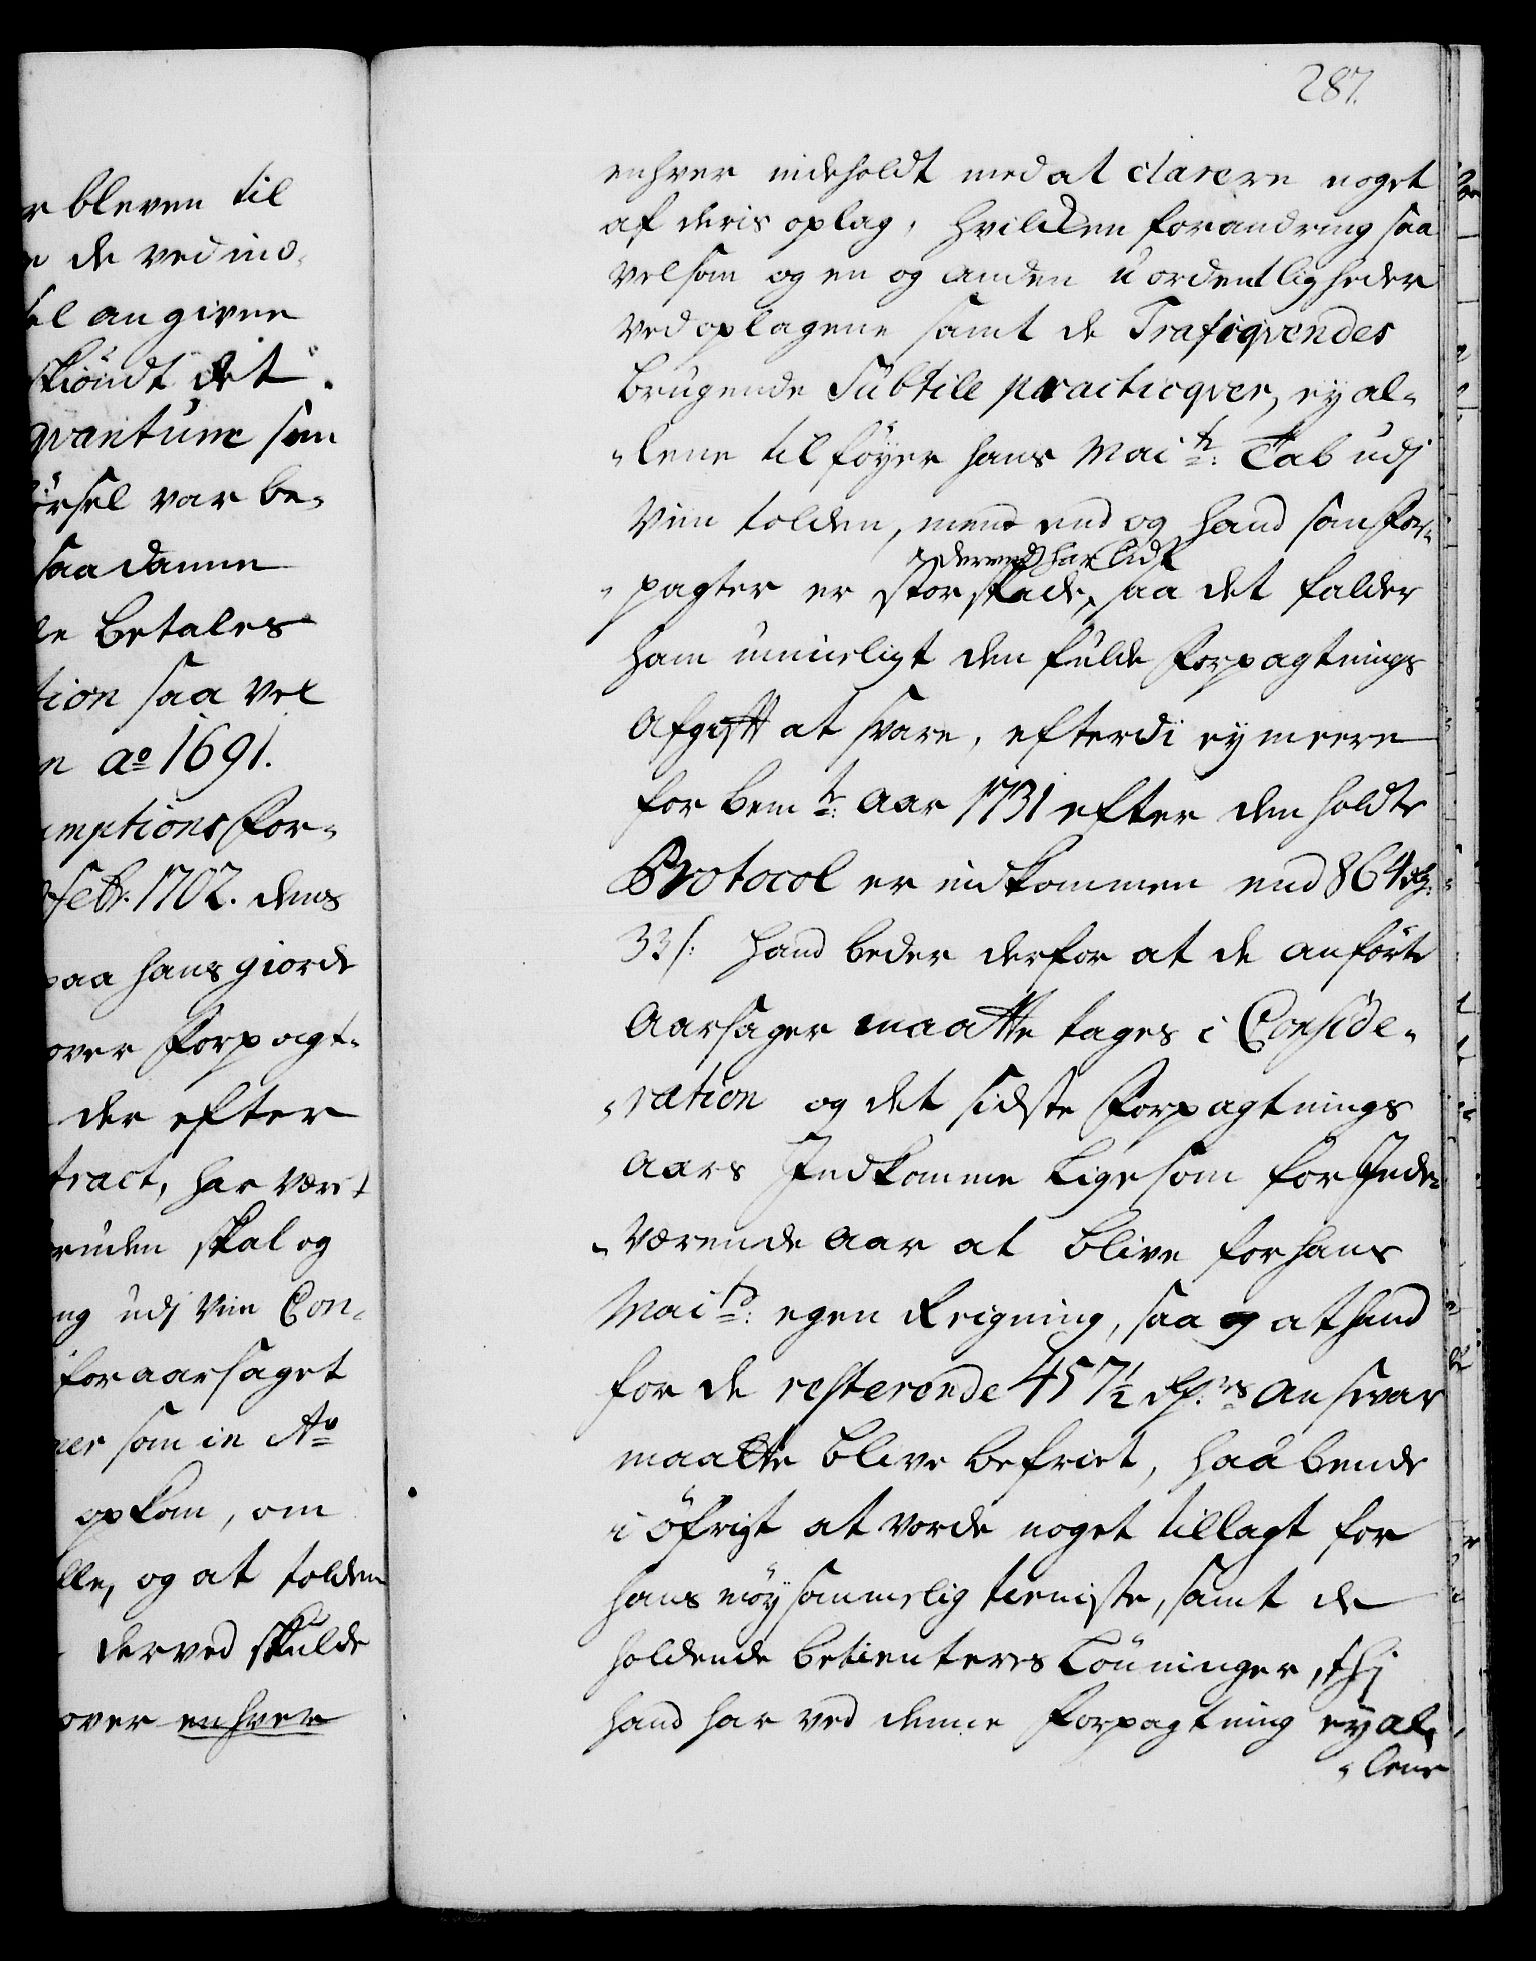 r bleven til
e de ved ind¬
el angivne
skiöndt det
qvantum som
örsel var be¬
saadanne
le betales
tion saa vel
n ao 1691.
umptions For¬
Febr: 1702. dens
paa hans giorde
over Forpagt¬
der efter
tract, har været
skal og
ng udj Viin Con¬
foraarsaget
ner som in Ao
opkom, om
lle, og at tolden
derved skulde
over enhver
287.
enhver indeholdt med at clarere noget
af deris oplag, hvilcken forandring saa
velsom og en og anden uordentligheder
ved oplagene samt de Trafiqvendes
brugende Subtile practiqver, ey al¬
lene tilföyer hans Maits: Tab udj
Viin tolden, mend end og hand som For¬
derved har lidt
pagter er stor skade, saa det falder
ham umueligt den fulde Forpagtnings
Afgifft at svare, efterdi ey meere
for bemte: Aar 1731 efter den holdte
Protocol er indkommen end 864 rdr:
33 s: hand beder derfor at de anförte
Aarsager maatte tages i Conside¬
ration og det sidste Forpagtnings
Aars Indkomme ligesom for Inde¬
værende Aar at blive for hans
Maits: egen Reigning, saa og at hand
for de resterende 457½ rdrs Ansvar
maatte blive befriet, haabende
i öfrigt at vorde noget tillagt for
hans möysommelig tieniste, samt de
holdende betienteres Lönninger, thj
hand har ved denne Forpagtning ey al¬
lene